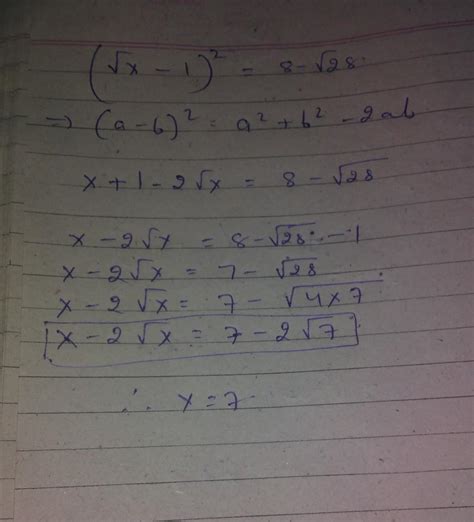 (√x − 1)² = 8 − √28
⇒ (a − b)² = a² + b² − 2ab
x + 1 − 2√x = 8 − √28
x − 2√x = 8 − √28 − 1
x − 2√x = 7 − √28
x − 2√x = 7 − √4×7
x − 2√x = 7 − 2√7
∴ x = 7